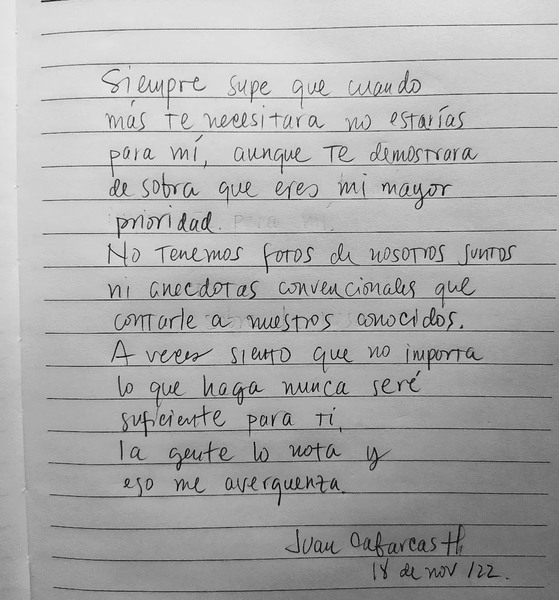 Siempre supe que cuando
más te necesitara no estarías
para mí, aunque te demostrara
de sobra que eres mi mayor
prioridad.
No tenemos fotos de nosotros juntos
ni anecdotas convencionales que
contarle a nuestros conocidos.
A veces siento que no importa
lo que haga nunca seré
suficiente para ti,
la gente lo nota y
eso me averguenza.
Juan Cabarcas H.
18 de nov /22.